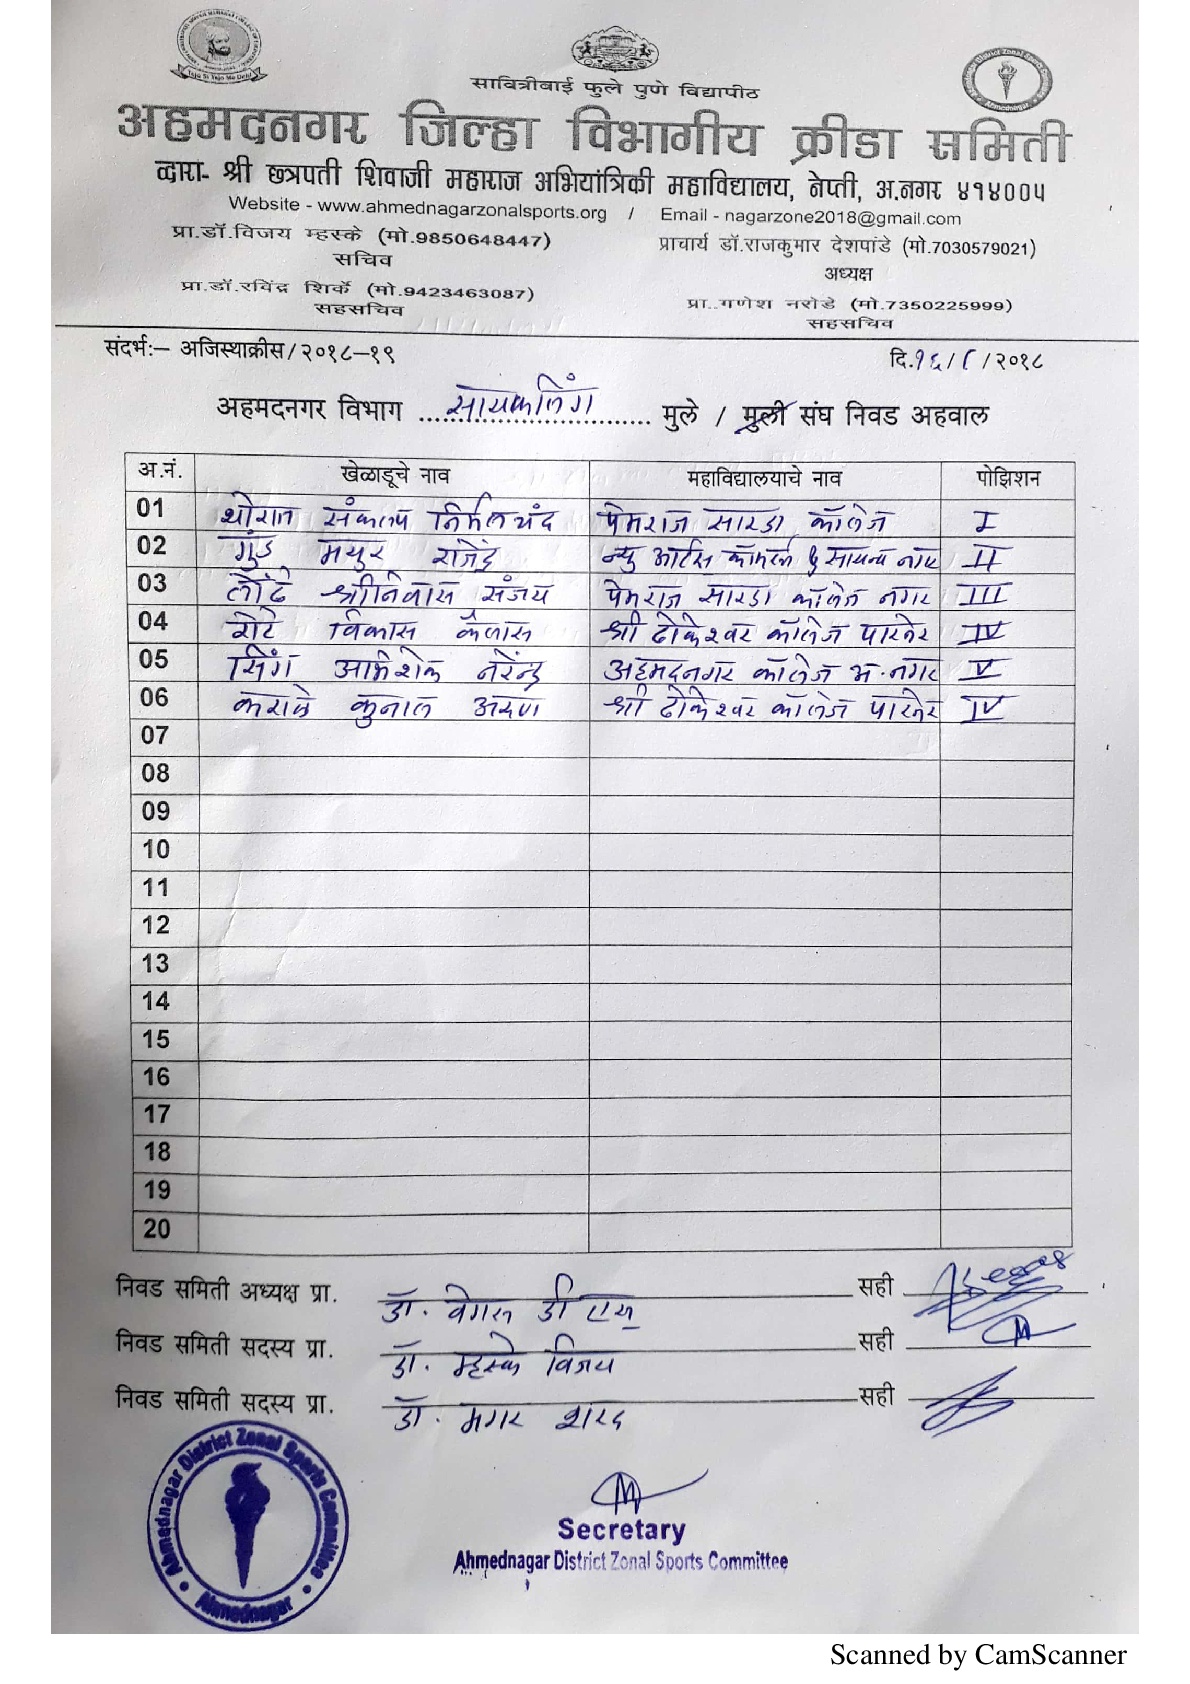 Teja Si Tejo Me Dehi
District Zonal
Ahmednagar
सावित्रीबाई फुले पुणे विद्यापीठ
अहमदनगर जिल्हा विभागीय क्रीडा समिती
व्दारा- श्री छत्रपती शिवाजी महाराज अभियांत्रिकी महाविद्यालय, नेप्ती, अ.नगर ४१४००५
Website - www.ahmednagarzonalsports.org / Email - nagarzone2018@gmail.com
प्रा.डॉ.विजय म्हस्के (मो.9850648447) प्राचार्य डॉ.राजकुमार देशपांडे (मो.7030579021)
सचिव अध्यक्ष
प्रा.डॉ.रविंद्र शिर्के (मो.9423463087) प्रा..गणेश नरोडे (मो.7350225999)
सहसचिव सहसचिव
संदर्भ:– अजिस्थाक्रीस/२०१८–१९ दि.१६/८/२०१८
अहमदनगर विभाग सायकलिंग मुले / मुली संघ निवड अहवाल
अ.नं. खेळाडूचे नाव महाविद्यालयाचे नाव पोझिशन
01 थोरात संकल्प निर्मलचंद पेमराज सारडा कॉलेज I
02 गुंड मयुर राजेंद्र न्यु आर्टस कॉमर्स & सायन्स नगर II
03 लोंढे श्रीनिवास संजय पेमराज सारडा कॉलेज नगर III
04 शेटे विकास कैलास श्री ढोकेश्वर कॉलेज पारनेर IV
05 सिंग अभिशेक नरेंन्द्र अहमदनगर कॉलेज अ.नगर V
06 कराळे कुनाल अरुण श्री ढोकेश्वर कॉलेज पारनेर IV
07
08
09
10
11
12
13
14
15
16
17
18
19
20
निवड समिती अध्यक्ष प्रा. डॉ. वेगस डी एस सही
निवड समिती सदस्य प्रा. डॉ. म्हस्के विजय सही
निवड समिती सदस्य प्रा. डॉ. मगर शरद सही
Ahmednagar District Zonal Sports Committee
Ahmednagar
Secretary
Ahmednagar District Zonal Sports Committee
Scanned by CamScanner